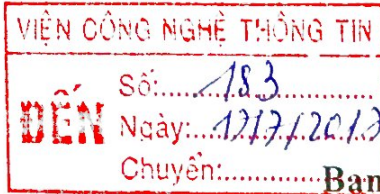 VIỆN CÔNG NGHỆ THÔNG TIN
ĐẾN
Số:.....183.....
Ngày:..17/7/2017
Chuyển:..........
Ban